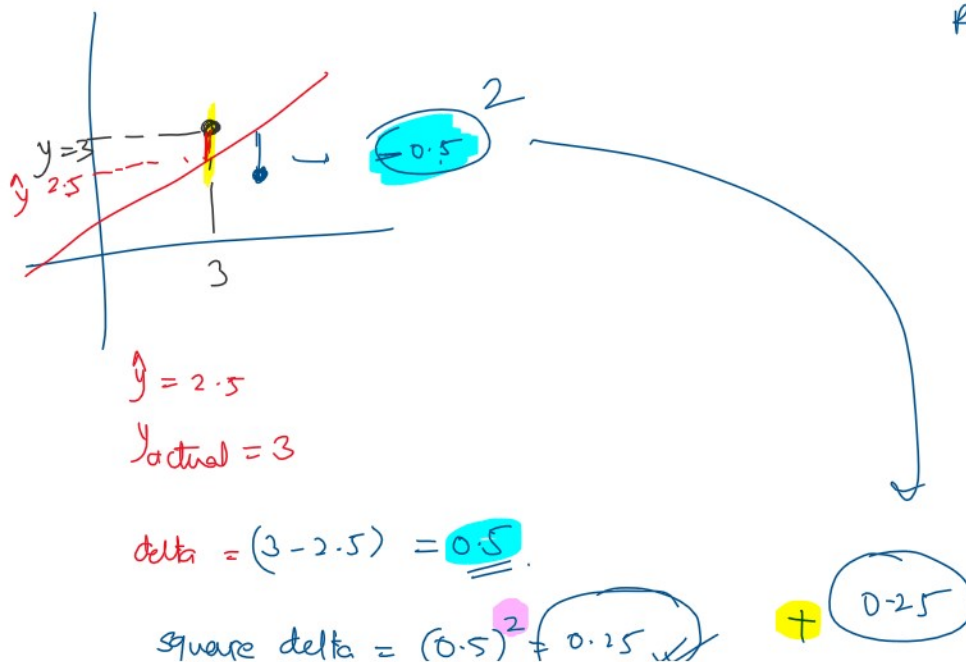 2
y = 3
-0.5
ŷ 2.5
3
ŷ = 2.5
y actual = 3
delta = (3 - 2.5) = 0.5
square delta = (0.5)² = 0.25 + 0.25